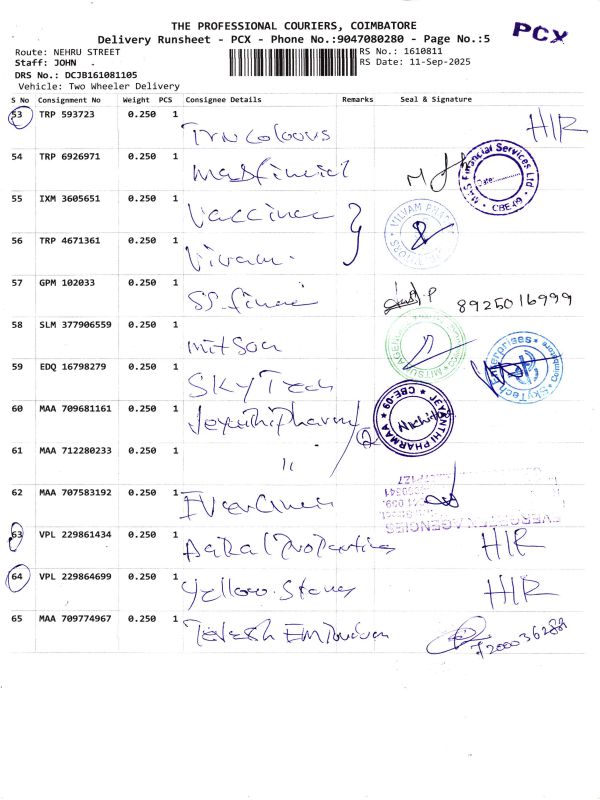 THE PROFESSIONAL COURIERS, COIMBATORE
Delivery Runsheet - PCX - Phone No.:9047080280 - Page No.:5
PCX
Route: NEHRU STREET
RS No.: 1610811
Staff: JOHN .
RS Date: 11-Sep-2025
DRS No.: DCJB161081105
Vehicle: Two Wheeler Delivery
S No Consignment No Weight PCS Consignee Details Remarks Seal & Signature
53 TRP 593723 0.250 1 HIR
54 TRP 6926971 0.250 1
Financial Services Ltd
Date:
CBE-09
55 IXM 3605651 0.250 1 Vaccines
56 TRP 4671361 0.250 1
57 GPM 102033 0.250 1 8925016999
58 SLM 377906559 0.250 1 mitson
59 EDQ 16798279 0.250 1 SKYTech
SkyTech Enterprises
Coimbatore
60 MAA 709681161 0.250 1 JeyanthiPharma
JEYANTHI PHARMAA
CBE-09
61 MAA 712280233 1 0.250 "
62 MAA 707583192 0.250 1
EVERGREEN AGENCIES
63 VPL 229861434 0.250 1 HIR
64 VPL 229864699 0.250 1 Yellow Stones HIR
65 MAA 709774967 0.250 1
7200036289